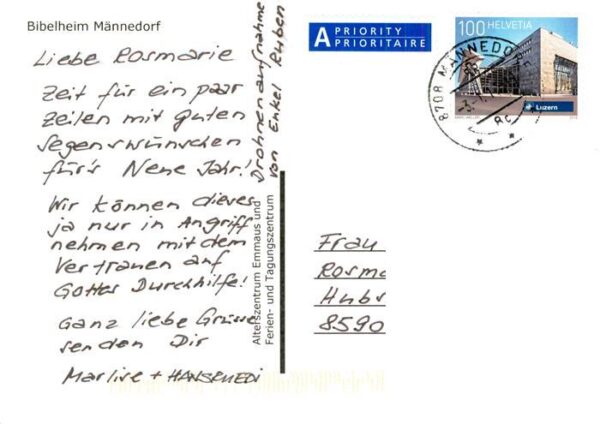 Bibelheim Männedorf
Liebe Rosmarie
Zeit für ein paar
Zeilen mit guten
Segenswünschen
für's Neue Jahr!
Wir können dieses
ja nur in Angriff
nehmen mit dem
Vertrauen auf
Gottes Durchhilfe!
Ganz liebe Grüsse
senden Dir
Marlise + HANSRUEDI
Drohnenaufnahme
von Enkel Ruben
Alterszentrum Emmaus und
Ferien- und Tagungszentrum
A PRIORITY
PRIORITAIRE
100 HELVETIA
Luzern
8708 MÄNNEDORF
Frau
Rosma
Hubs
8590